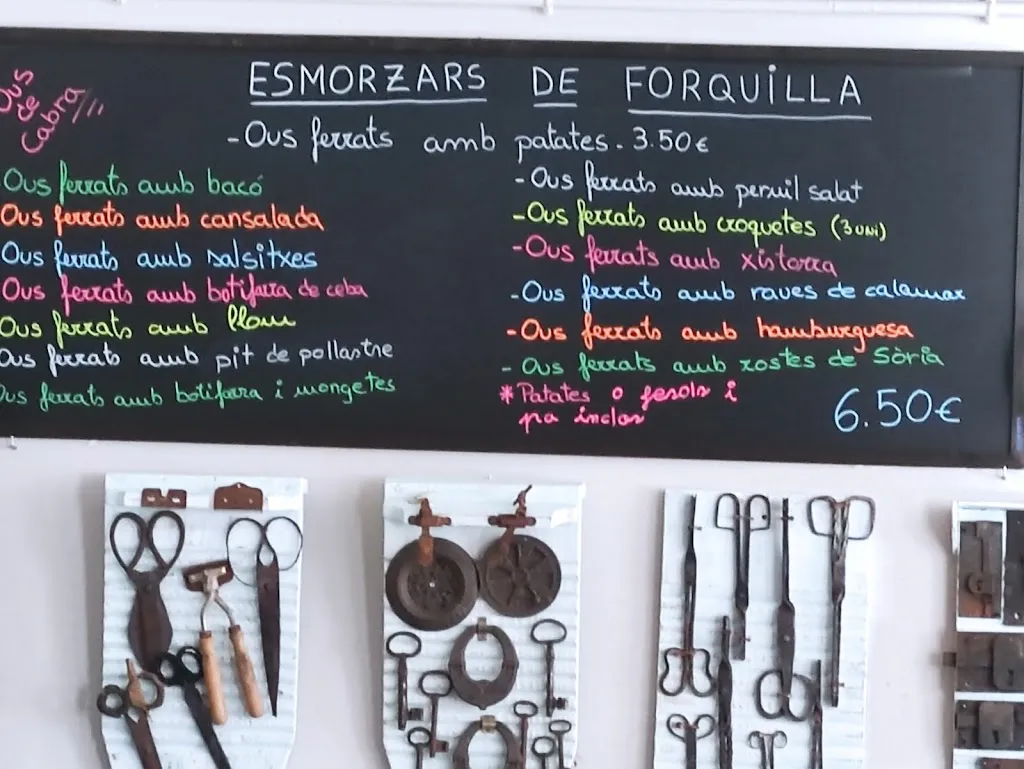 Ous
de
Cabra
ESMORZARS DE FORQUILLA
- Ous ferrats amb patates. 3.50€
Ous ferrats amb bacó
Ous ferrats amb cansalada
Ous ferrats amb salsitxes
Ous ferrats amb botifarra de ceba
Ous ferrats amb llom
Ous ferrats amb pit de pollastre
Ous ferrats amb botifarra i mongetes
- Ous ferrats amb pernil salat
- Ous ferrats amb croquetes (3 uni)
- Ous ferrats amb xistorra
- Ous ferrats amb raves de calamar
- Ous ferrats amb hamburguesa
- Ous ferrats amb rostes de Sòria
* Patates o fesols i
pa inclos
6.50€